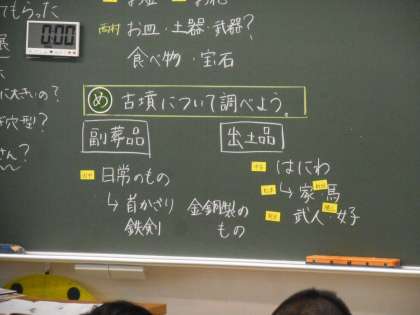 てもらった
0:00
展
に大きいの?
穴型?
さん?
西村 お皿・土器・武器?
食べ物・宝石
め 古墳について調べよう。
副葬品
日常のもの
↳ 首かざり
鉄剣
金銅製の
もの
出土品
はにわ
↳ 家 馬
武人 女子